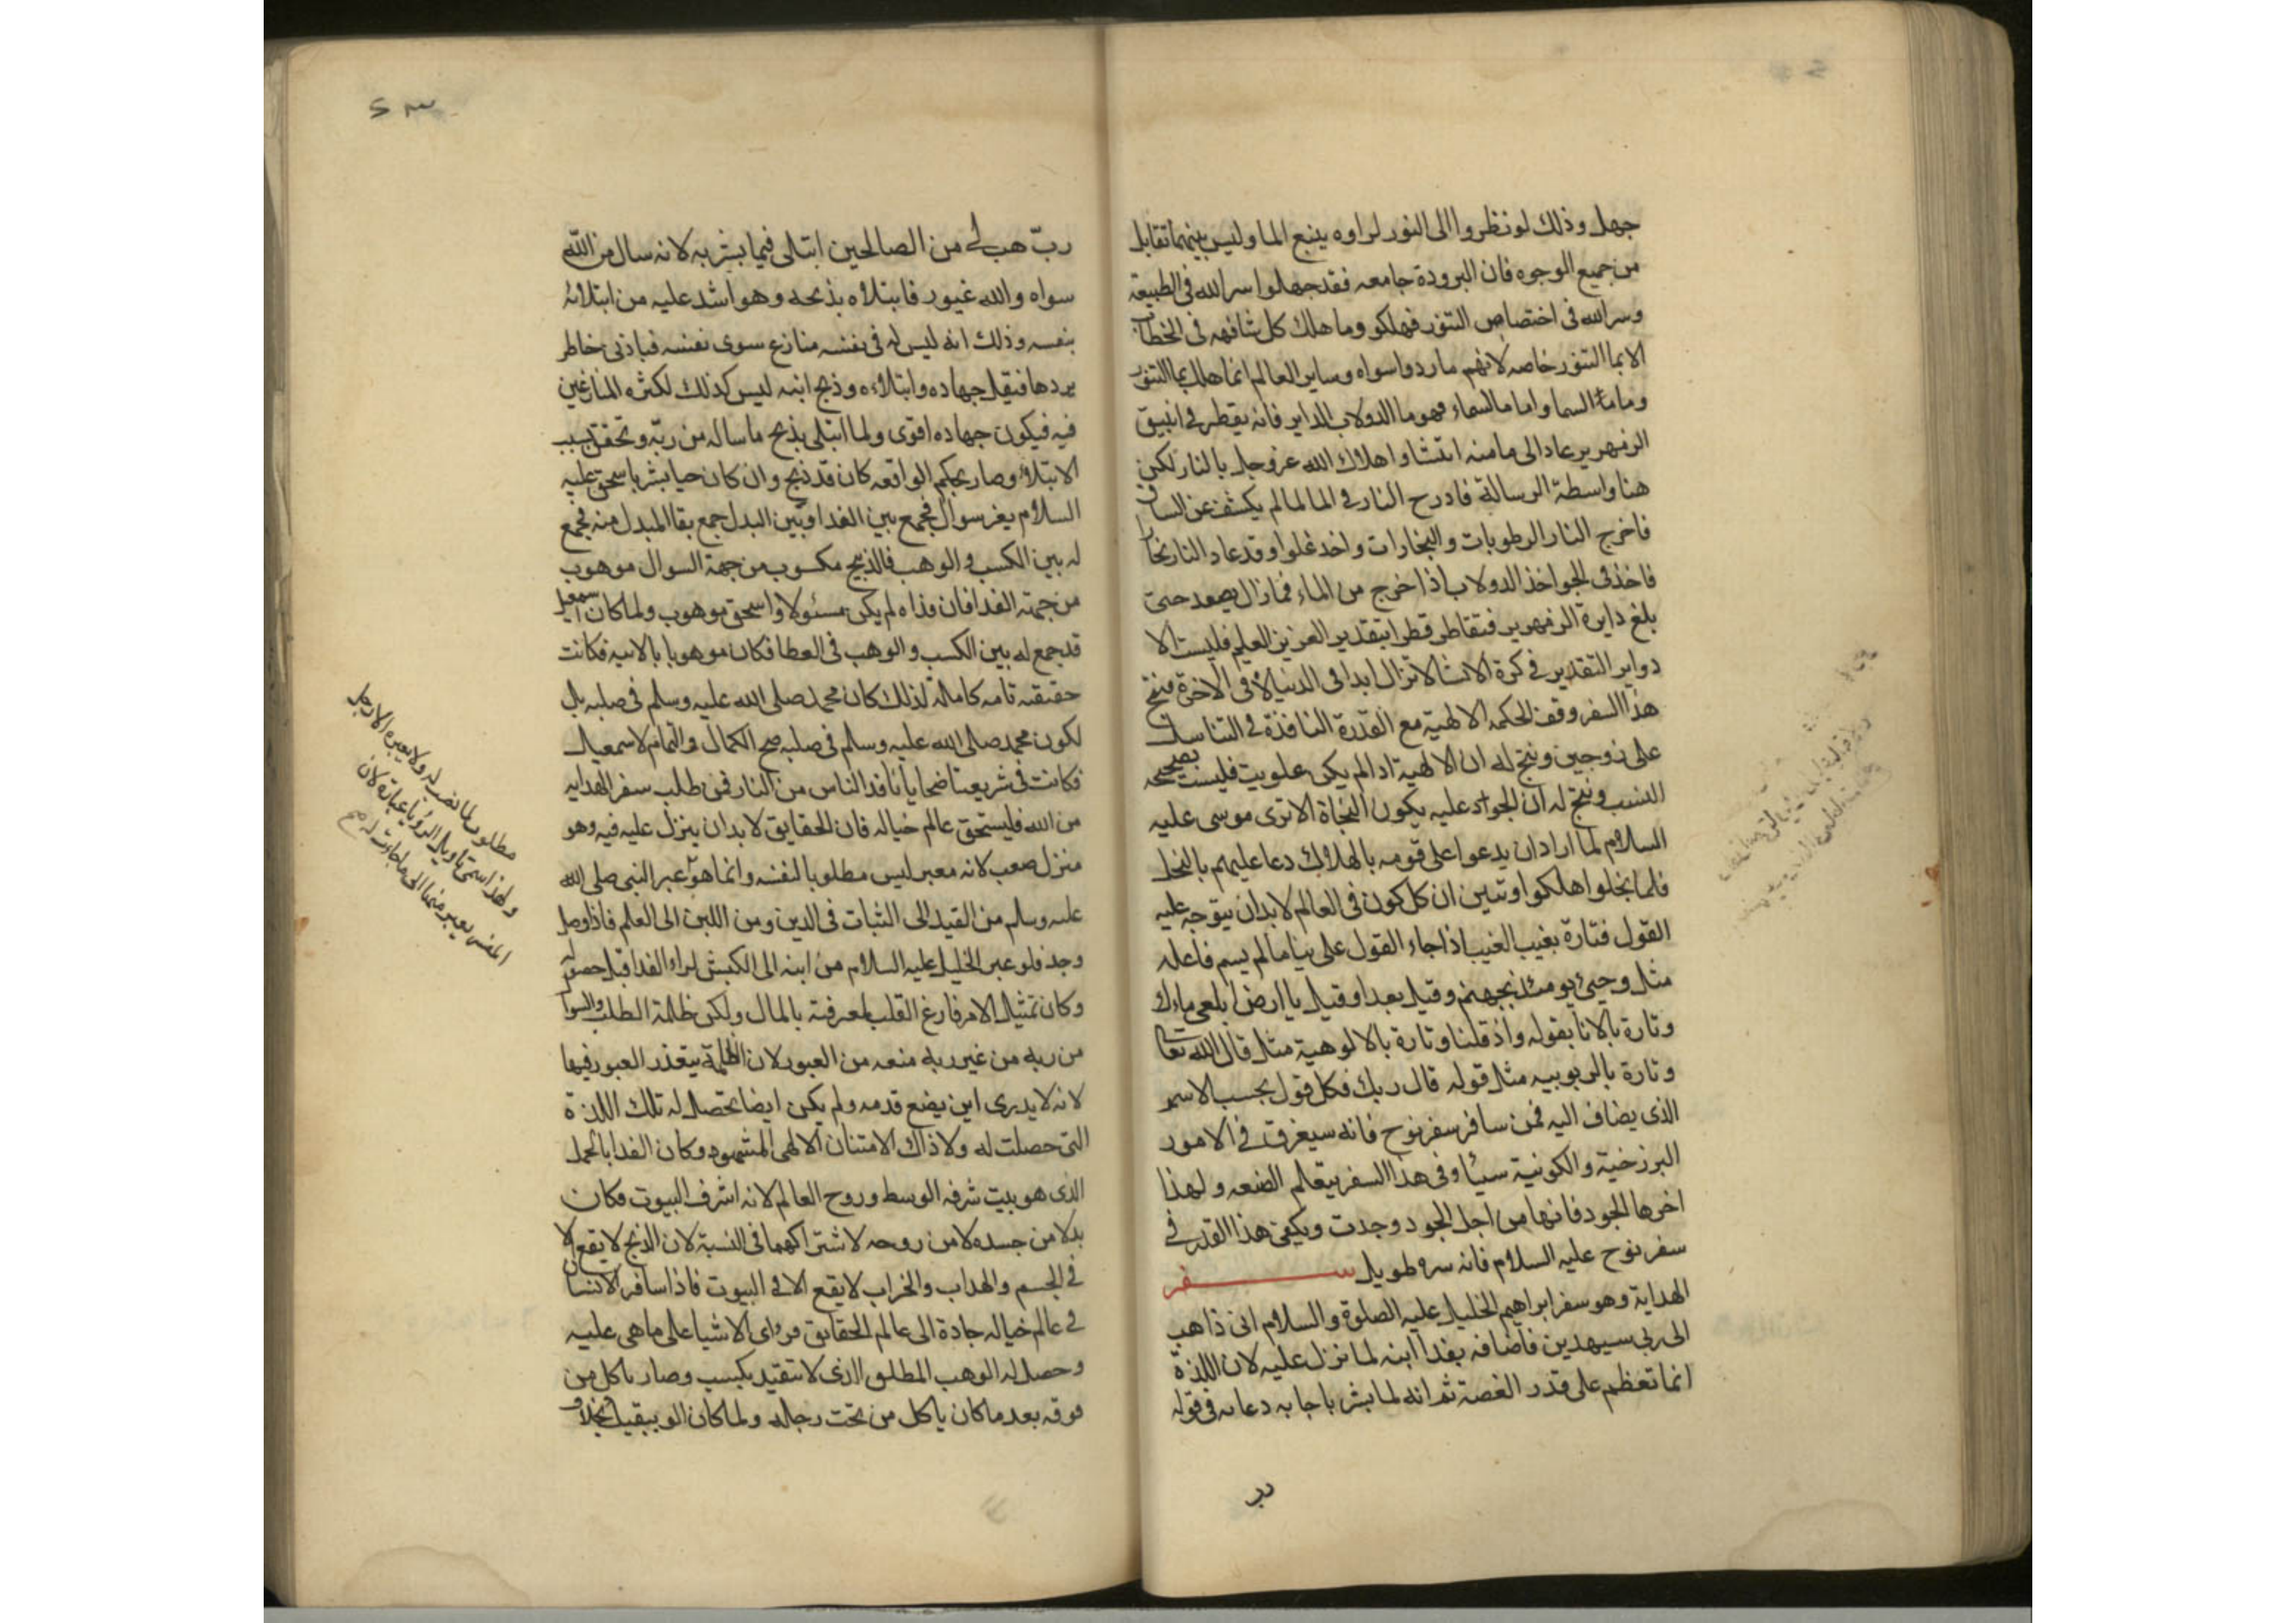 جهل وذلك لو نظروا الى النور لراوه ينبع الما وليس بينهما تقابل
من جميع الوجوه فان البرودة جامعه فقد جهلوا سر الله فى الطبيعة
وسر الله فى اختصاص التنور فهلكو وما هلك كل شافهه فى الخطاب
الا بما التنور خاصه لانهم ما ردوا سواه وساير العالم انما هلك بما التنور
وماء السما واما ما السماء فهو ما الدولاب الداير فانه يقطر فى انبيق
الزمهرير عاد الى ما منه انتشا واهلاك الله عز وجل بالنار لكن
هنا واسطة الرسالة فادرج النار فى الما لما لم يكشف عن الساق
فاخرج النار الرطوبات والبخارات واخذ غلوا وقد عاد النار بخارا
فاخذ فى الجو اخذ الدولاب اذا خرج من الماء فما زال يصعد حتى
بلغ دايرة الزمهرير فتقاطر قطرا بتقدير العزيز العليم فليست الا
دواير التقدير فى كرة الانشا لا تزال ابدا فى الدنيا لا فى الاخرة فينتج
هذا السفر وقف الحكمه الالهية مع القدرة النافذة فى التناسل
على زوجين وينتج له ان الالهية اذا لم يكن علويت فليست بصحيحه
النسب وينتج له ان الجواد عليه يكون النجاة الا ترى موسى عليه
السلام لما اراد ان يدعوا على قومه بالهلاك دعا عليهم بالبخل
فلما بخلوا اهلكوا وتبين ان كل كون فى العالم لا بد ان يتوجه عليه
القول فتارة بغيب الغيب اذا جاء القول على بنا ما لم يسم فاعله
مثل وجىء يومئذ بجهنم وقيل بعدا وقيل يا ارض ابلعى ماءك
وتارة بالانا بقوله واذ قلنا وتارة بالالوهية مثل قال الله تعا
وتارة بالربوبيه مثل قوله قال ربك فكل قول بحسب الاسم
الذى يضاف اليه فمن سافر سفر نوح فانه سيغرق فى الامور
البرزخية والكونية سيا وفى هذا السفر يتعلم الصنعه ولهذا
اخرها الجود فانها من اجل الجود وجدت ويكفى هذا القدر فى
سفر نوح عليه السلام فانه سره طويل سفر
الهداية وهو سفر ابراهيم الخليل عليه الصلوة والسلام انى ذاهب
الى ربى سيهدين فاضافه بفدا ابنه لما نزل عليه لان اللذة
انما تعظم على قدر الغصة ثم انه لما بشر باجابه دعائه فى قوله
رب
٤٣
ربّ هب لى من الصالحين ابتلى فيما بشر به لانه سال من الله
سواه والله غيور فابتلاه بذبحه وهو اشد عليه من ابتلائه
بنفسه وذلك انه ليس له فى نفسه منازع سوى نفسه فباذنى خاطر
يردها فيقل جهاده وابتلاءه وذبح ابنه ليس كذلك لكثره المنازعين
فيه فيكون جهاده اقوى ولما ابتلى بذبح ما ساله من ربّه وتحقق بسبب
الابتلاء وصار بحكم الواقعه كان قد ذبح وان كان حيا بشر باسحق عليه
السلام بغير سوال فجمع بين الفدا وبين البدل جمع بقا المبدل منه فجمع
له بين الكسب والوهب فالذبيح مكسوب من جهة السوال موهوب
من جهة الفدا فان فداه لم يكن مسئولا واسحق موهوب ولما كان اسمعيل
قد جمع له بين الكسب والوهب فى العطا فكان موهوبا بالابيه فكانت
حقيقته تامه كاملة لذلك كان محمد صلى الله عليه وسلم فى صلبه بل
لكون محمد صلى الله عليه وسلم فى صلبه صح الكمال والتمام لاسمعيل
فكانت فى شريعتنا ضحايانا فدا الناس من النار فمن طلب سفر الهدايه
من الله فليستحق عالم خياله فان الحقايق لا بد ان ينزل عليه فيه وهو
منزل صعب لانه معبر ليس مطلوبا لنفسه وانما هو عبر النبى صلى الله
عليه وسلم من القيد الى الثبات فى الدين ومن اللبن الى العلم فاذا وصل
وجد فلو عبر الخليل عليه السلام من ابنه الى الكبش لراى الفدا قبل حصوله
وكان تمثيل الامر فارغ القلب لمعرفته بالمال ولكن ظلمة الطلب والسوال
من ربه من غير ربه منعه من العبور لان الظلمة يتعذر العبور فيها
لانه لا يدرى اين يضع قدمه ولم يكن ايضا تحصل له تلك اللذة
التى حصلت له ولا ذاك الامتنان الالهى المشهود وكان الفدا بالحمل
الذى هو بيت شرفه الوسط وروح العالم لانه اشرف البيوت فكان
بدلا من جسده لا من روحه لاشتراكهما فى النسبة لان الذبح لا يقع الا
فى الجسم والهداب والخراب لا يقع الا فى البيوت فاذا سافر الانسان
فى عالم خياله جادة الى عالم الحقايق فراى الاشيا على ما هى عليه
وحصل له الوهب المطلق الذى لا يتقيد بكسب وصار ياكل من
فوقه بعد ما كان ياكل من تحت رجله ولما كان الو يبقيك بخلاف
مطلوب لما نصب له ولا يعبره الا رجل
ولهذا سمى تاويل الرؤيا عبارة لان
المفسر يعبر منها الى ما جات له صح